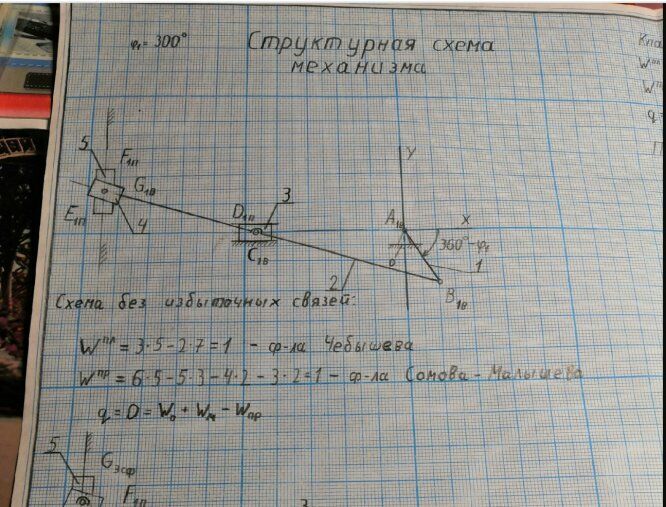 φ₁ = 300°
Структурная схема
механизма
Кла
Wпл
Wп
q
П
5
F1п
G1в
E1п
4
D1п
3
C1в
Y
A1в
X
360°-φ₁
0
1
2
B1в
Схема без избыточных связей:
Wпл = 3·5 - 2·7 = 1 - ф-ла Чебышева
Wпр = 6·5 - 5·3 - 4·2 - 3·2 = 1 - ф-ла Сомова - Малышева
q = 0 = W₀ + Wм - Wпр
5
G3сф
F1п
3